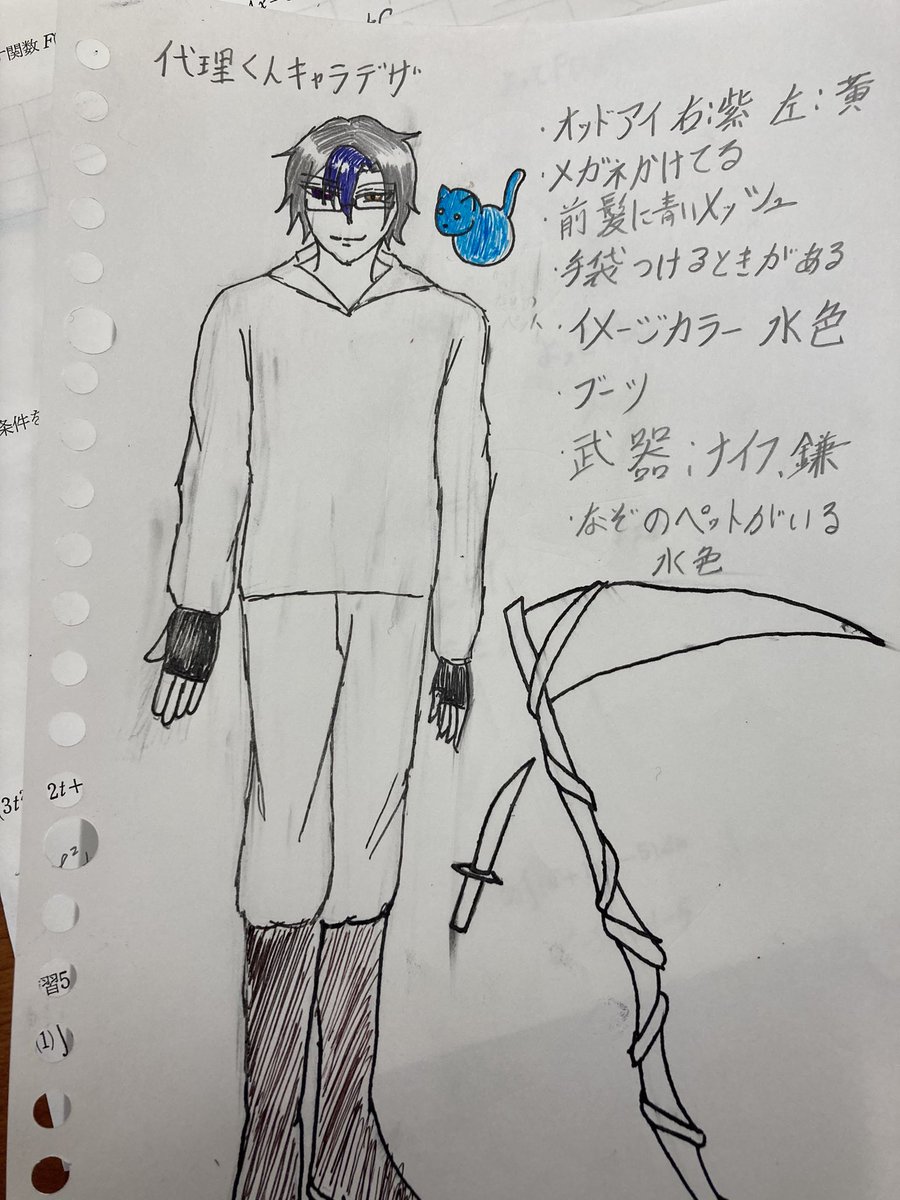 代理くんキャラデザ
・オッドアイ 右:紫 左:黄
・メガネかけてる
・前髪に青いメッシュ
・手袋つけるときがある
・イメージカラー 水色
・ブーツ
・武器:ナイフ、鎌
・なぞのペットがいる
水色
関数 F
条件を
(3t²
2t+
習5
(1)